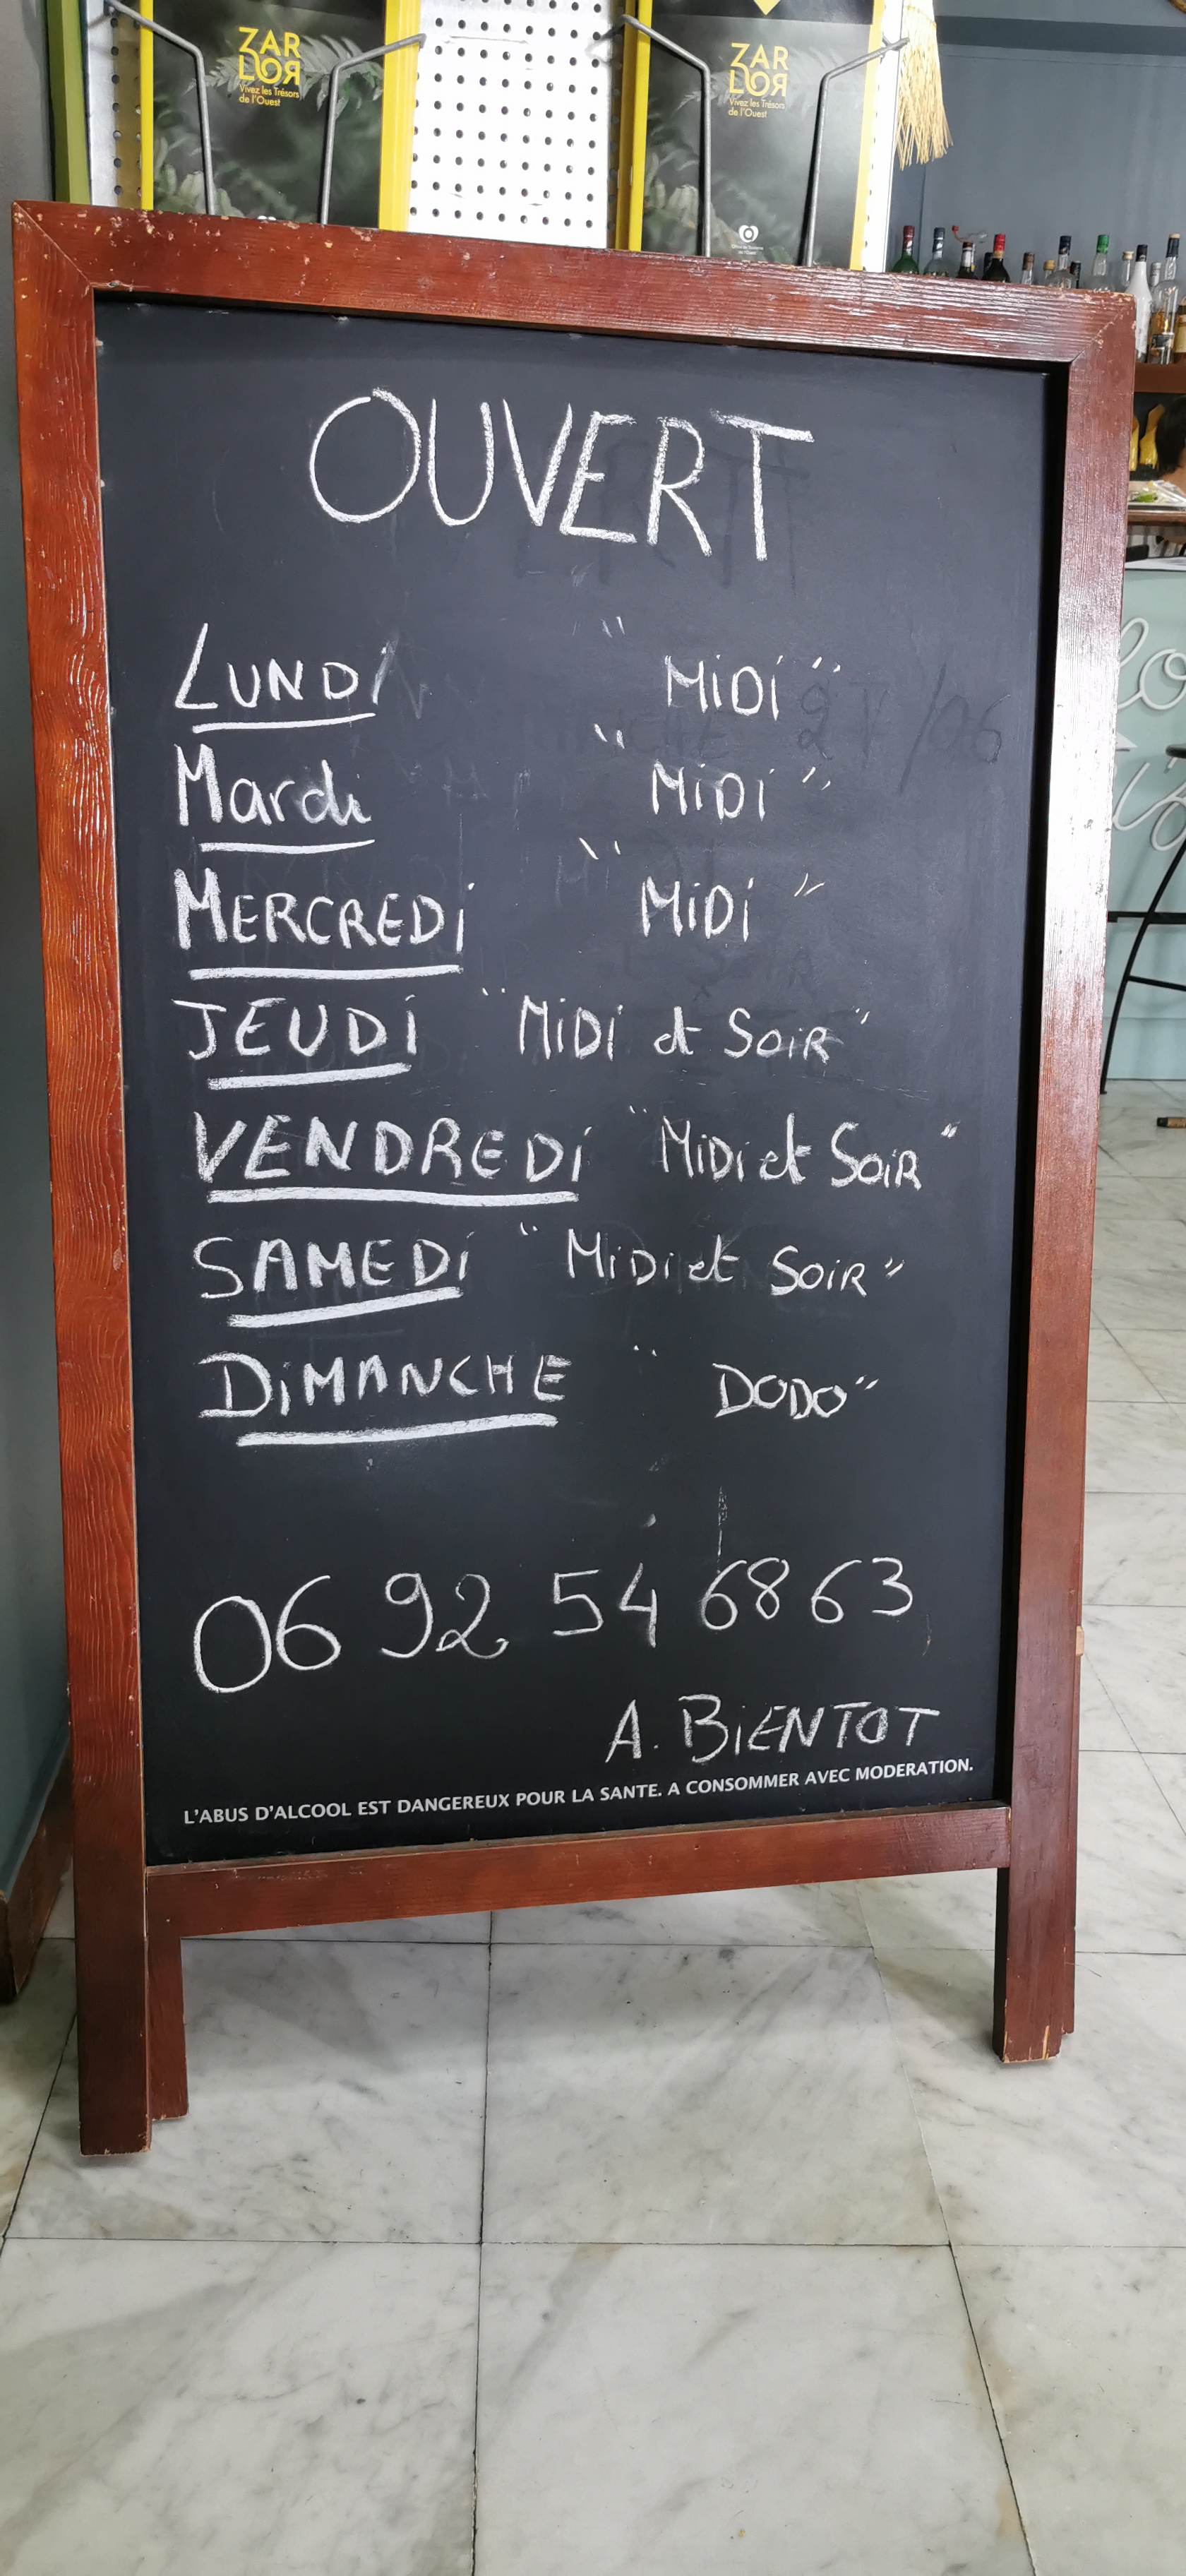 ZAR
LOR
Vivez les Trésors
de l'Ouest
ZAR
LOR
Vivez les Trésors
de l'Ouest
OUVERT
LUNDi " MiDi "
Mardi " MiDi "
MERCREDi " MiDi "
JEUDi " MiDi et SoiR "
VENDREDi " MiDi et SoiR "
SAMEDi " MiDi et SoiR "
DiMANCHE " DODO "
06 92 54 68 63
A. BiENTOT
L'ABUS D'ALCOOL EST DANGEREUX POUR LA SANTE. A CONSOMMER AVEC MODERATION.